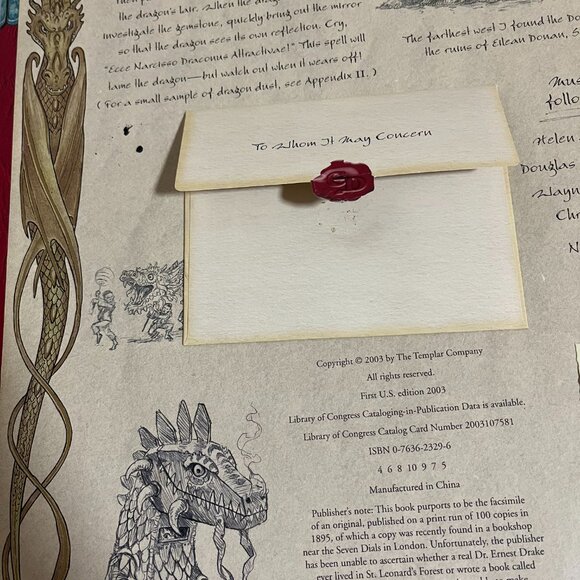 the dragon's lair. When the drag
investigate the gemstone, quickly bring out the mirror
so that the dragon sees its own reflection. Cry,
"Ecce Narcisso Draconus Attractivae!" This spell will
tame the dragon—but watch out when it wears off!
(For a small sample of dragon dust, see Appendix II.)
The farthest west I found the Do
the ruins of Eilean Donan, S
Mus
follo
Helen
Douglas
Wayn
Chr
N
To Whom It May Concern
ED
Copyright © 2003 by The Templar Company
All rights reserved.
First U.S. edition 2003
Library of Congress Cataloging-in-Publication Data is available.
Library of Congress Catalog Card Number 2003107581
ISBN 0-7636-2329-6
4 6 8 10 9 7 5
Manufactured in China
Publisher's note: This book purports to be the facsimile
of an original, published on a print run of 100 copies in
1895, of which a copy was recently found in a bookshop
near the Seven Dials in London. Unfortunately, the publisher
has been unable to ascertain whether a real Dr. Ernest Drake
ever lived in St. Leonard's Forest or wrote a book called